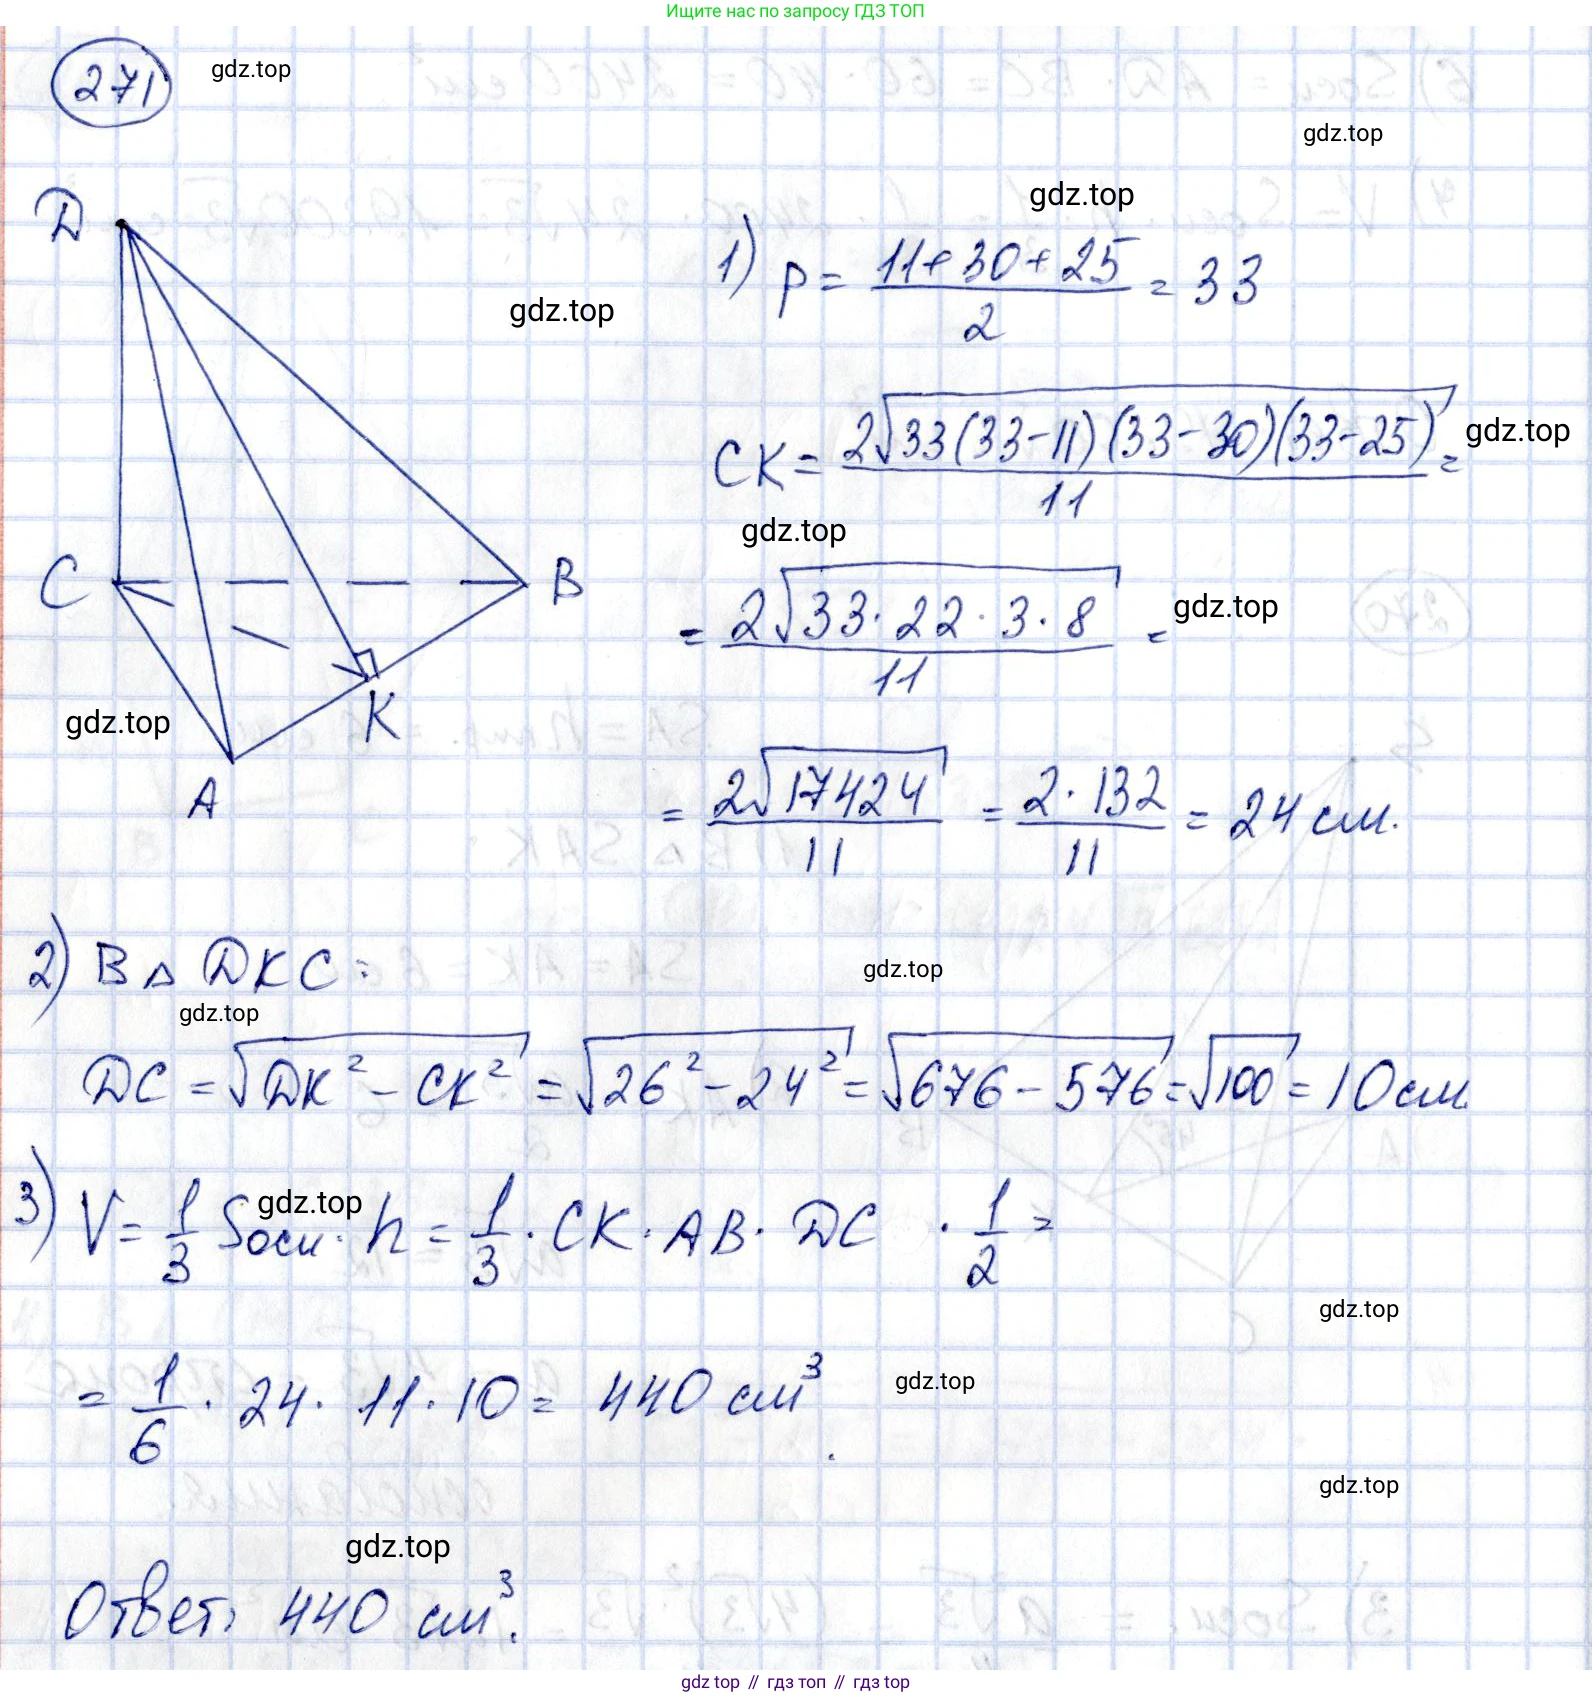 Ищите нас по запросу ГДЗ ТОП
271
gdz.top
gdz.top
D
gdz.top
1) p = (11 + 30 + 25)/2 = 33
gdz.top
CK = 2√(33(33-11)(33-30)(33-25))/11 =
gdz.top
gdz.top
C
B
= 2√(33·22·3·8)/11 =
gdz.top
K
gdz.top
A
= 2√17424/11 = 2·132/11 = 24 см.
2) В △ DKC:
gdz.top
gdz.top
DC = √(DK² - CK²) = √(26² - 24²) = √(676 - 576) = √100 = 10 см
3) V = 1/3 Sосн · h = 1/3 · CK · AB · DC · 1/2 =
gdz.top
gdz.top
= 1/6 · 24 · 11 · 10 = 440 см³.
gdz.top
gdz.top
gdz.top
Ответ: 440 см³.
gdz.top // гдз топ // gdz.top